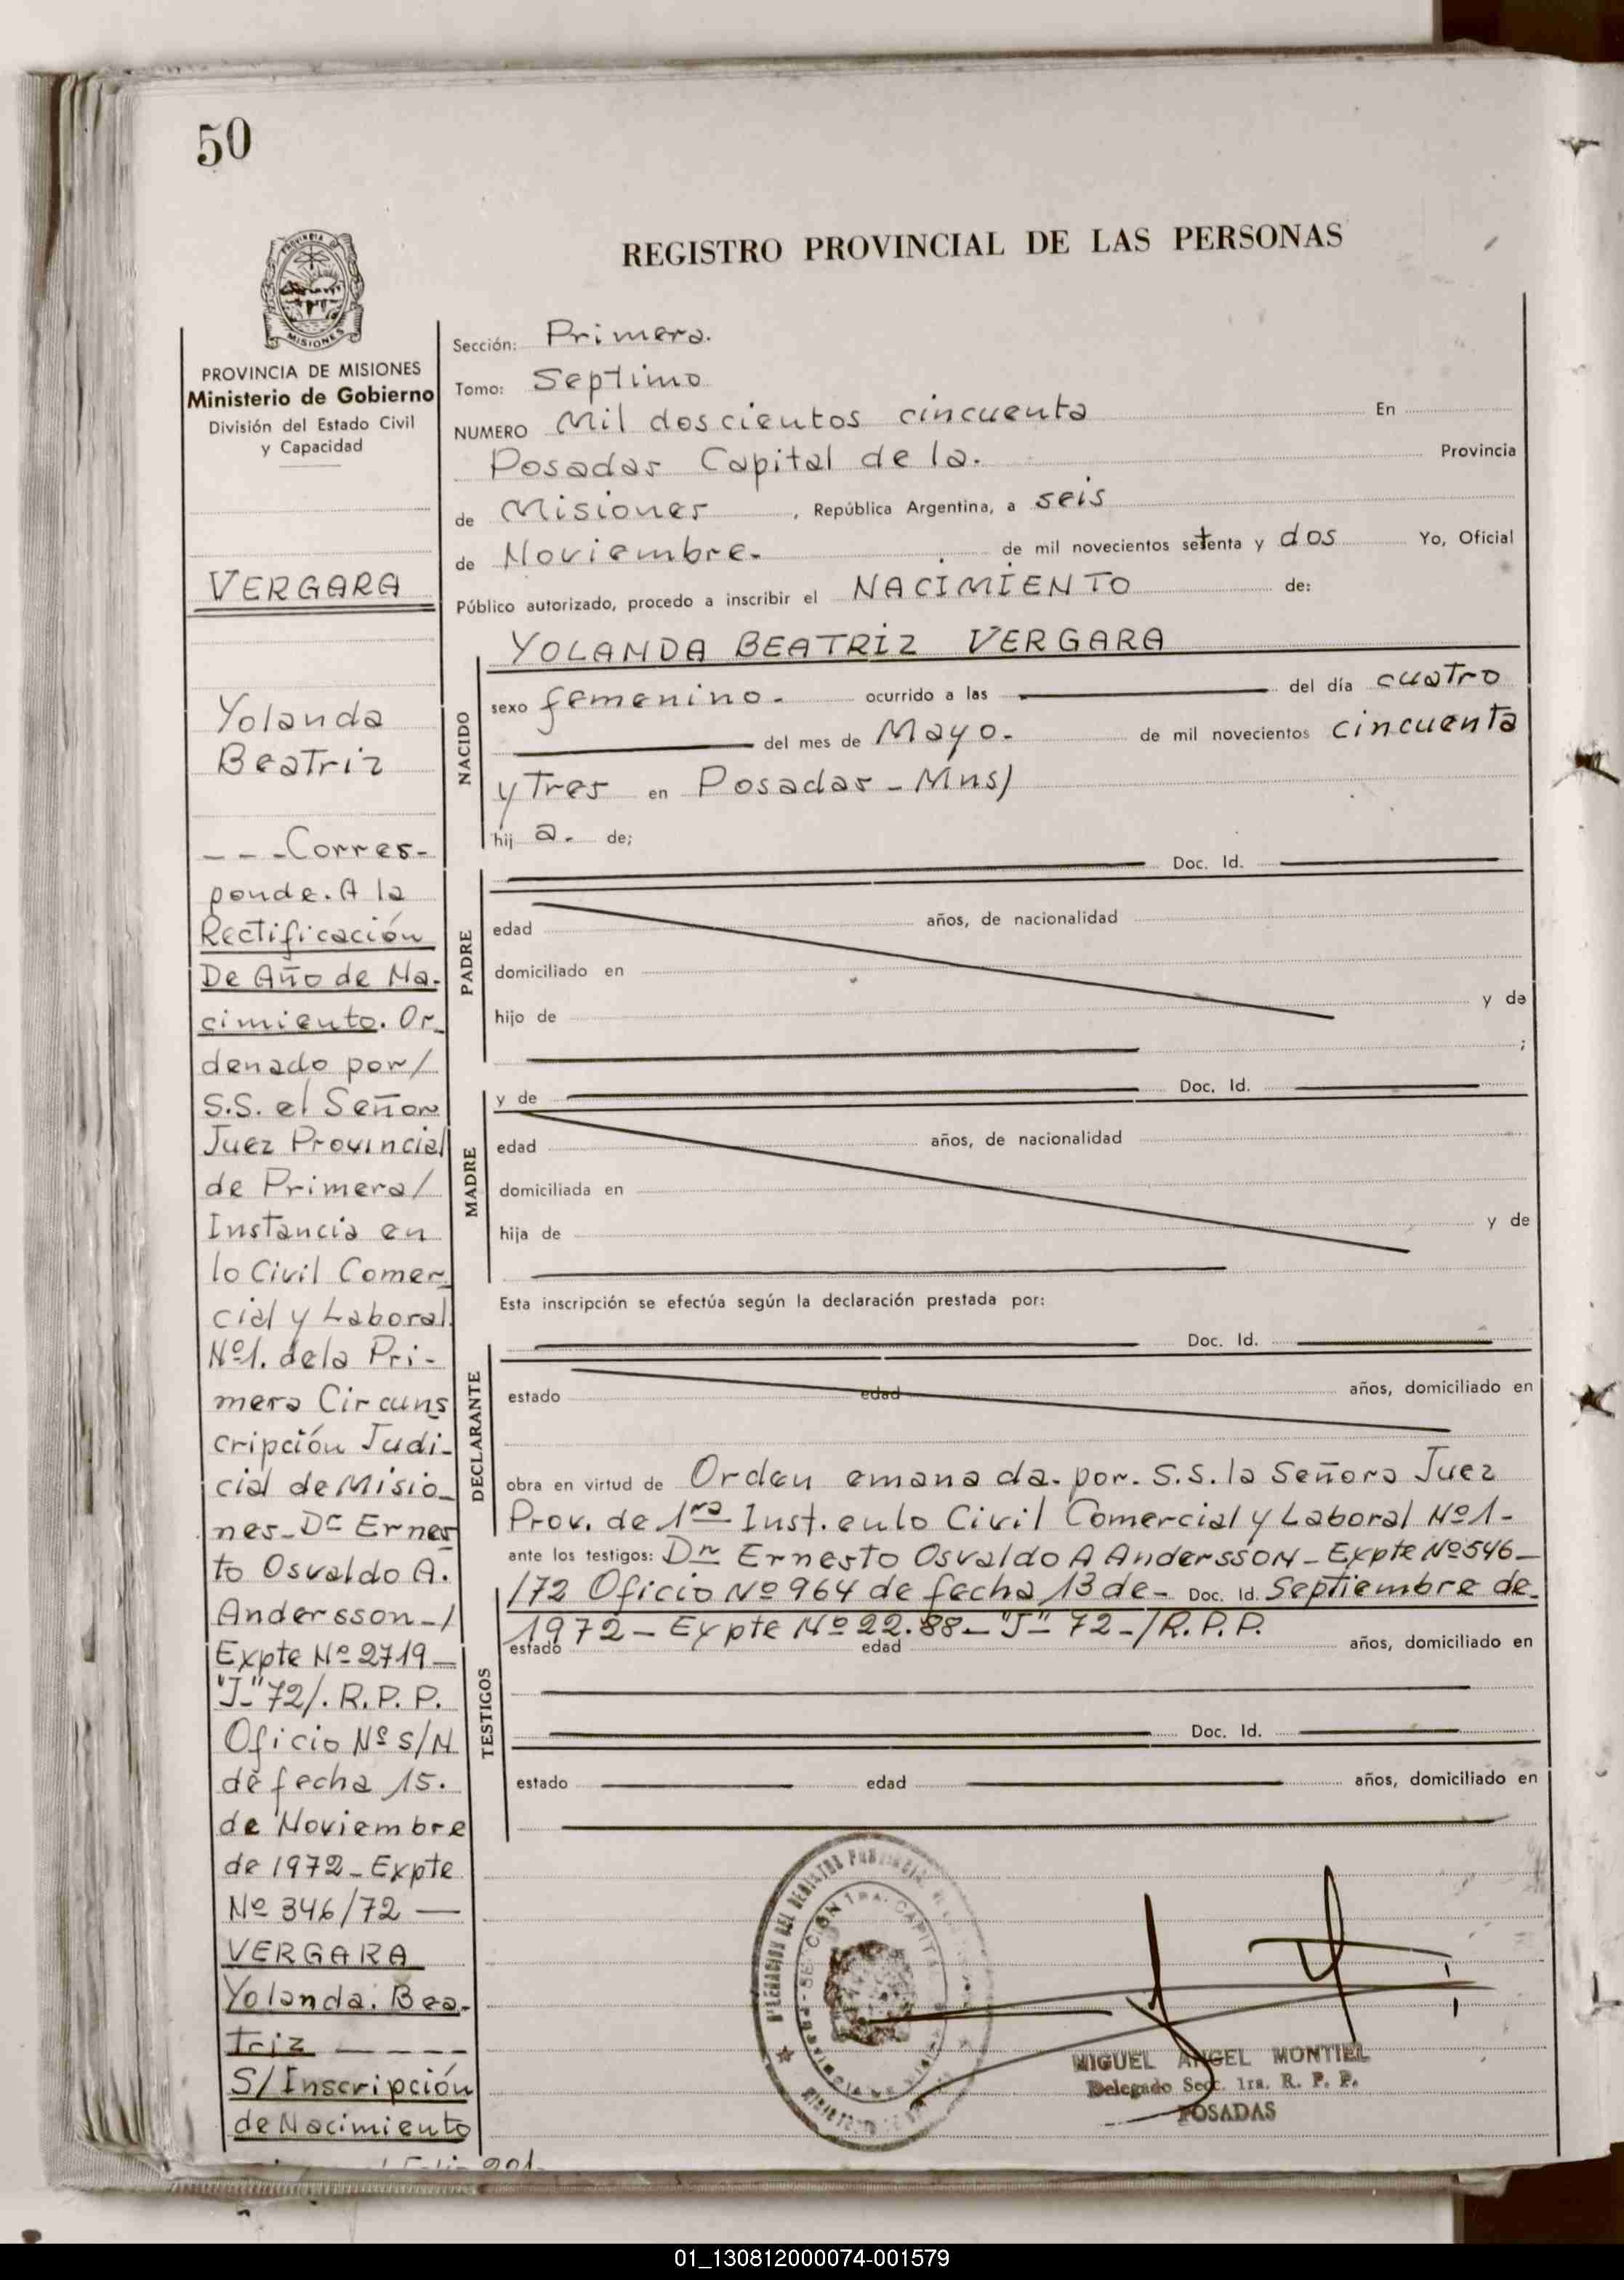 50
REGISTRO PROVINCIAL DE LAS PERSONAS
PROVINCIA
MISIONES
PROVINCIA DE MISIONES
Ministerio de Gobierno
División del Estado Civil
y Capacidad
VERGARA
Yolanda
Beatriz
---Corres-
ponde. A la
Rectificación
De Año de Na-
cimiento. Or-
denado por/
S.S. el Señor
Juez Provincial
de Primera/
Instancia en
lo Civil Comer-
cial y Laboral
Nº1. dela Pri-
mera Circuns
cripción Judi-
cial de Misio-
nes-Dr Ernes
to Osvaldo A.
Andersson-/
Expte Nº 2719-
"J-"72/. R.P.P.
Oficio Nº S/N
de fecha 15.
de Noviembre
de 1972-Expte
Nº 346/72 —
VERGARA
Yolanda. Bea-
triz ----
S/Inscripción
de Nacimiento
Sección: Primera.
Tomo: Septimo
NUMERO Mil doscientos cincuenta En
Posadas Capital de la. Provincia
de Misiones, República Argentina, a seis
de Noviembre. de mil novecientos setenta y dos Yo, Oficial
Público autorizado, procedo a inscribir el NACIMIENTO de:
YOLANDA BEATRIZ VERGARA
NACIDO
sexo femenino. ocurrido a las del día cuatro
del mes de Mayo. de mil novecientos cincuenta
y Tres en Posadas - Mns/
hij a. de;
Doc. Id.
PADRE
edad años, de nacionalidad
domiciliado en
hijo de y de
;
y de Doc. Id.
MADRE
edad años, de nacionalidad
domiciliada en
hija de y de
Esta inscripción se efectúa según la declaración prestada por:
Doc. Id.
DECLARANTE
estado edad años, domiciliado en
obra en virtud de Orden emanada. por. S.S. la Señora Juez
Prov. de 1ra Inst. en lo Civil Comercial y Laboral Nº1-
ante los testigos: Dn Ernesto Osvaldo A Andersson - Expte Nº546-
/72 Oficio Nº 964 de fecha 13 de- Doc. Id. Septiembre de
1972 - Expte Nº 22.88 - "J-" 72-/R.P.P.
TESTIGOS
estado edad años, domiciliado en
Doc. Id.
estado edad años, domiciliado en
MIGUEL ANGEL MONTIEL
Delegado Secc. 1ra. R. P. P.
POSADAS
01_130812000074-001579